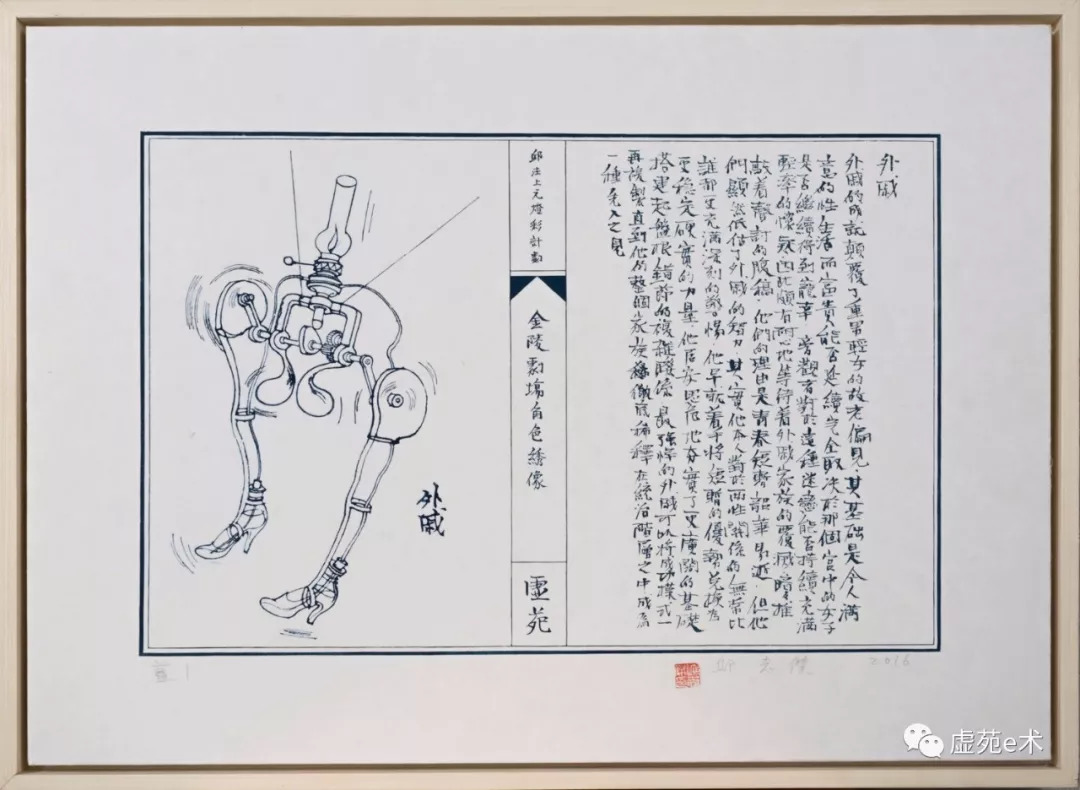 外戚
外戚的成就顛覆了重男輕女的故老偏見，其基礎是令人滿
意的性生活，而富貴能否延續完全取決於那個宮中的女子
是否繼續得到寵幸，旁觀者對於這種迷戀能否持續充滿
輕率的懷疑，因此頗有耐心地等待着外戚家族的覆滅，暗暗推
敲着聲討的腹稿，他們的理由是青春短暫韶華易逝，但他
們顯然低估了外戚的智力，其實他本人對於兩性關係的無常比
誰都更充滿深刻的警惕，他早就着手將短暫的優勢兌換為
更穩定硬實的力量，他居安思危地夯實了更廣闊的基礎
搭建起盤根錯節的複雜關係，最強悍的外戚可以將成功模式一
再複製直到他的整個家族徹底稀釋在統治階層之中成為
一種之見
邱注上元燈彩計劃
金陵劇場角色繡像
虛苑
外戚
邱志傑 2016
虚苑e术